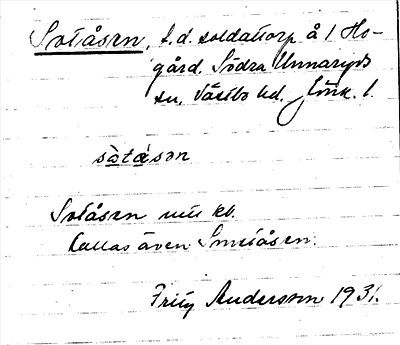 Sotåsen, f.d. soldattorp å 1 Ho-
gård. Södra Unnaryds
sn, Västbo hd. Jönk. l.
sòtåsən
Sotåsen nu kb.
kallas även Smedåsen.
Fritz Andersson 1931.